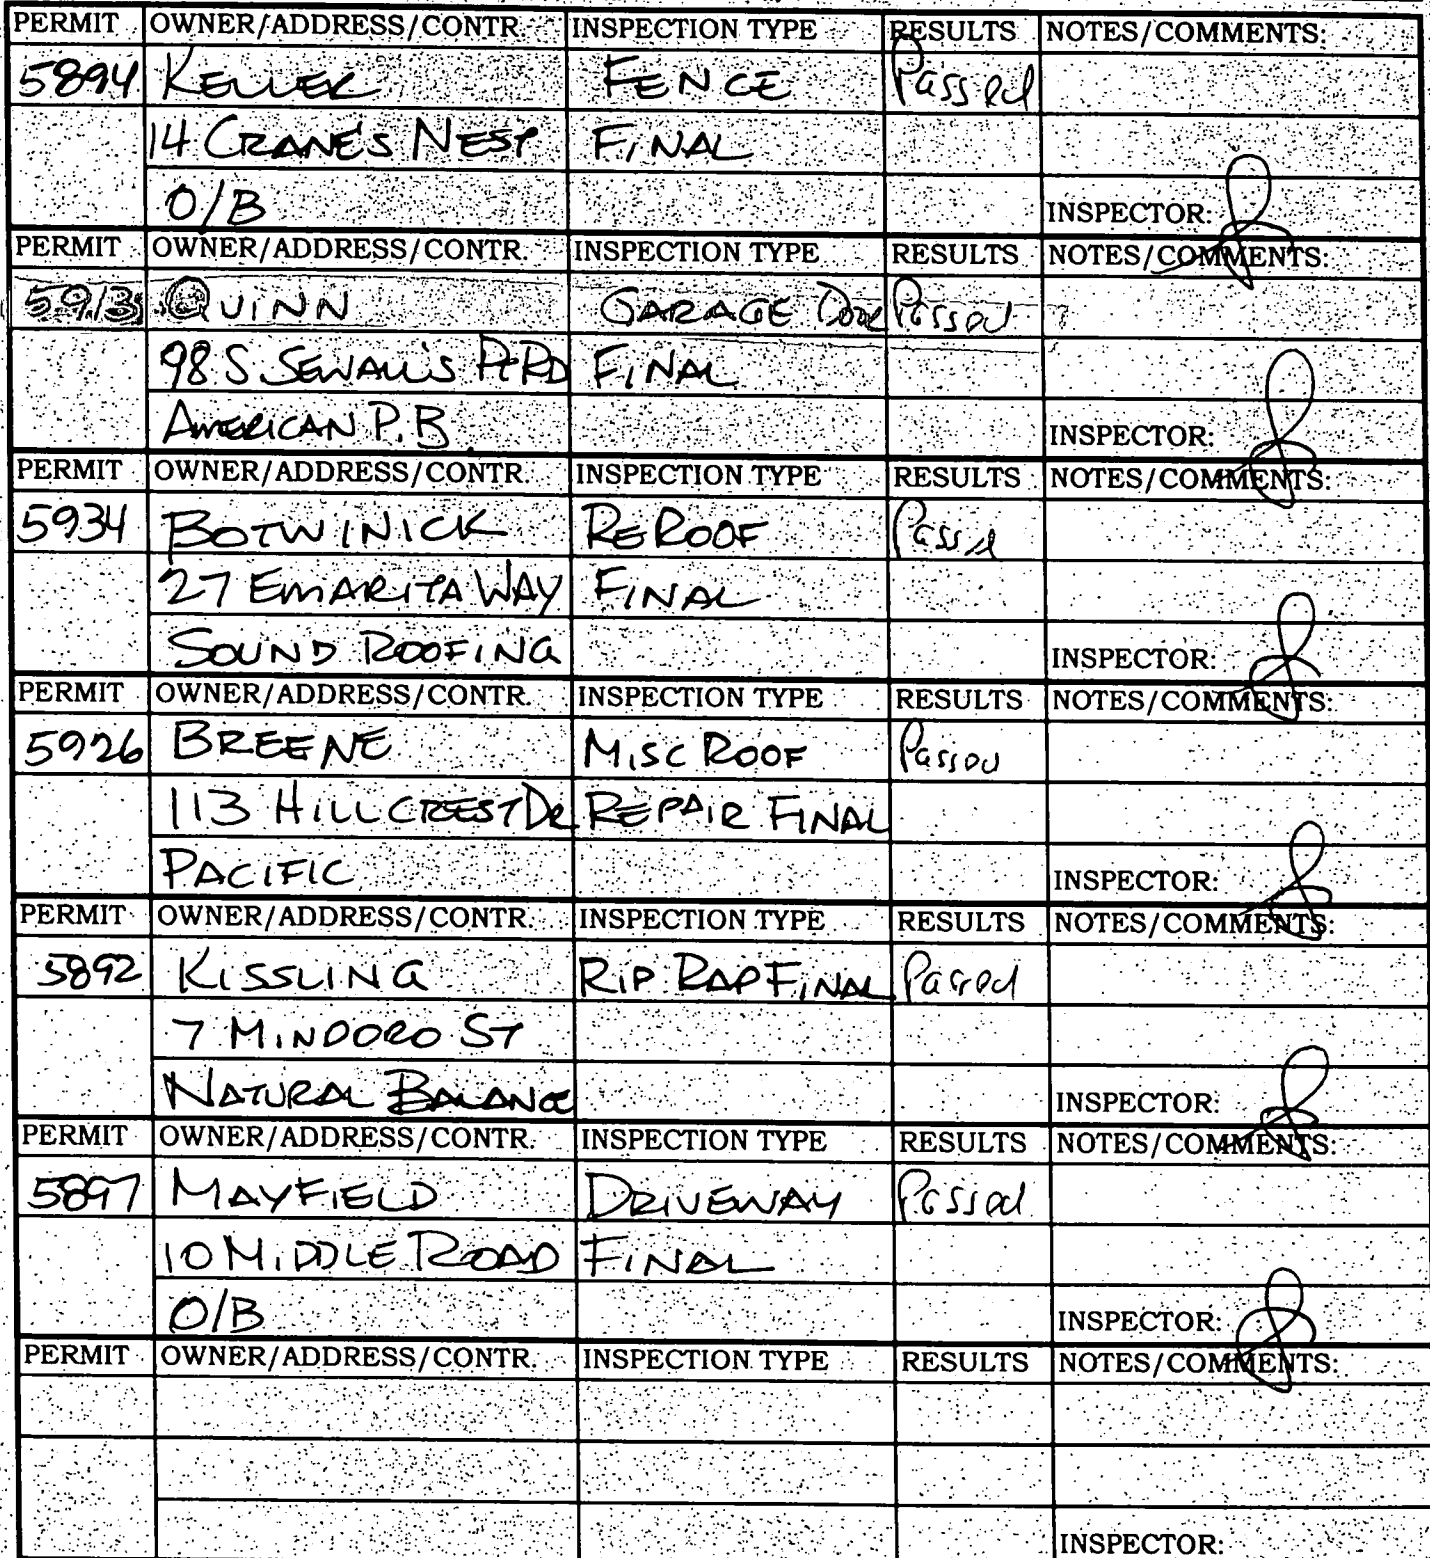 PERMIT OWNER/ADDRESS/CONTR. INSPECTION TYPE RESULTS NOTES/COMMENTS:
5894 KELLER FENCE Passed
14 CRANE'S NEST FINAL
O/B INSPECTOR:
PERMIT OWNER/ADDRESS/CONTR. INSPECTION TYPE RESULTS NOTES/COMMENTS:
5913 QUINN GARAGE DOOR Passed
98 S SEWALL'S PT RD FINAL
AMERICAN P.B. INSPECTOR:
PERMIT OWNER/ADDRESS/CONTR. INSPECTION TYPE RESULTS NOTES/COMMENTS:
5934 BOTWINICK REROOF Passed
27 EMARITA WAY FINAL
SOUND ROOFING INSPECTOR:
PERMIT OWNER/ADDRESS/CONTR. INSPECTION TYPE RESULTS NOTES/COMMENTS:
5926 BREENE MISC ROOF Passed
113 HILLCREST DR REPAIR FINAL
PACIFIC INSPECTOR:
PERMIT OWNER/ADDRESS/CONTR. INSPECTION TYPE RESULTS NOTES/COMMENTS:
5892 KISSLING RIP RAP FINAL Passed
7 MINDORO ST
NATURAL BALANCE INSPECTOR:
PERMIT OWNER/ADDRESS/CONTR. INSPECTION TYPE RESULTS NOTES/COMMENTS:
5897 MAYFIELD DRIVEWAY Passed
10 MIDDLE ROAD FINAL
O/B INSPECTOR:
PERMIT OWNER/ADDRESS/CONTR. INSPECTION TYPE RESULTS NOTES/COMMENTS:
INSPECTOR: